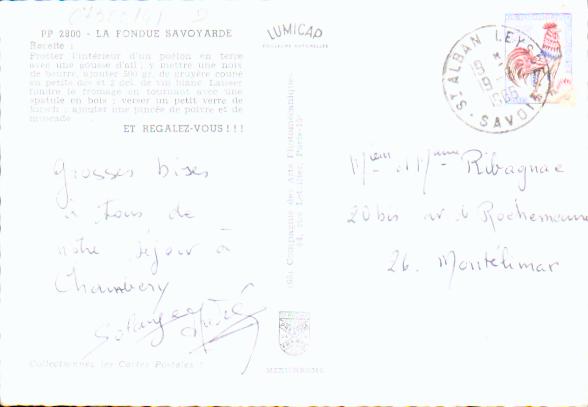 PP 2800 - LA FONDUE SAVOYARDE
Recette :
Frotter l'intérieur d'un poêlon en terre
avec une gousse d'ail ; y mettre une noix
de beurre, ajouter 500 gr. de gruyère coupé
en petits dés et 2 déc. de vin blanc. Laisser
fondre le fromage en tournant avec une
spatule en bois ; verser un petit verre de
kirsch ; ajouter une pincée de poivre et de
muscade
ET REGALEZ-VOUS !!!
LUMICAP
Grosses bises
à tous de
notre séjour à
Chambéry
Solange André
Collectionnez les Cartes Postales !
Compagnie des Arts Photomécaniques
MEXICHROME
ST ALBAN LEYSSE
19
1965
SAVOIE
Ribagnac
20 bis av. de Rochemaure
26. Montélimar